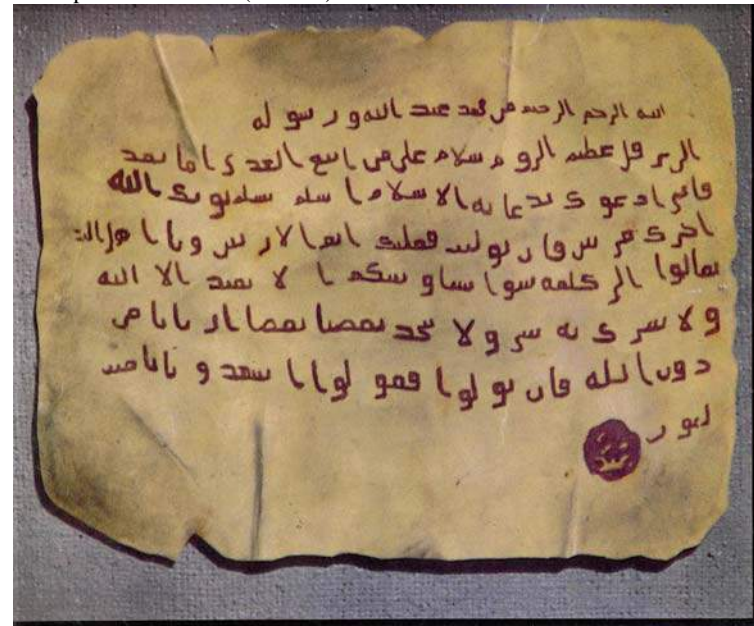 الله الرحمن الرحيم من محمد عبد الله و رسوله
الى هرقل عظيم الروم سلام على من اتبع الهدى اما بعد
فانى ادعوك بدعاية الاسلام اسلم تسلم يوتك الله
اجرك مرتين فان توليت فعليك اثم الاريسين ويا اهل الكتب
تعالوا الى كلمة سوا بيننا و بينكم ا لا نعبد الا الله
و لا نشرك به شيئا و لا يتخذ بعضنا بعضا اربابا من
دون الله فان تولوا فقولوا اشهدوا بانا مسـ
لمون